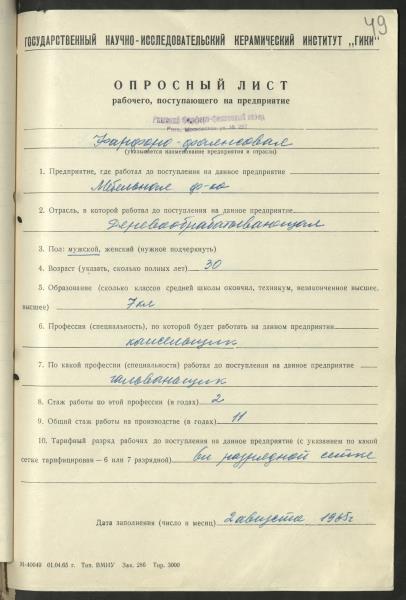 49
ГОСУДАРСТВЕННЫЙ НАУЧНО-ИССЛЕДОВАТЕЛЬСКИЙ КЕРАМИЧЕСКИЙ ИНСТИТУТ „ГИКИ"
ОПРОСНЫЙ ЛИСТ
рабочего, поступающего на предприятие
Рижский фарфоро-фаянсовый завод
Рига, Московская ул. №
Фарфоро-фаянсовая
(указывается наименование предприятия и отрасли)
1. Предприятие, где работал до поступления на данное предприятие
Мебельная ф-ка
2. Отрасль, в которой работал до поступления на данное предприятие
Деревообрабатывающая
3. Пол: мужской, женский (нужное подчеркнуть)
4. Возраст (указать, сколько полных лет) 30
5. Образование (сколько классов средней школы окончил, техникум, незаконченное высшее,
высшее) 7кл
6. Профессия (специальность), по которой будет работать на данном предприятии
капсельщик
7. По какой профессии (специальности) работал до поступления на данное предприятие
гальванащик
8. Стаж работы по этой профессии (в годах) 2
9. Общий стаж работы на производстве (в годах) 11
10. Тарифный разряд рабочих до поступления на данное предприятие (с указанием по какой
сетке тарифицирован — 6 или 7 разрядной) разрядной сетке
Дата заполнения (число и месяц) 2 августа 1965г
М-40049 01.04.65 г. Тип. ВМИУ Зак. 286 Тир. 3000